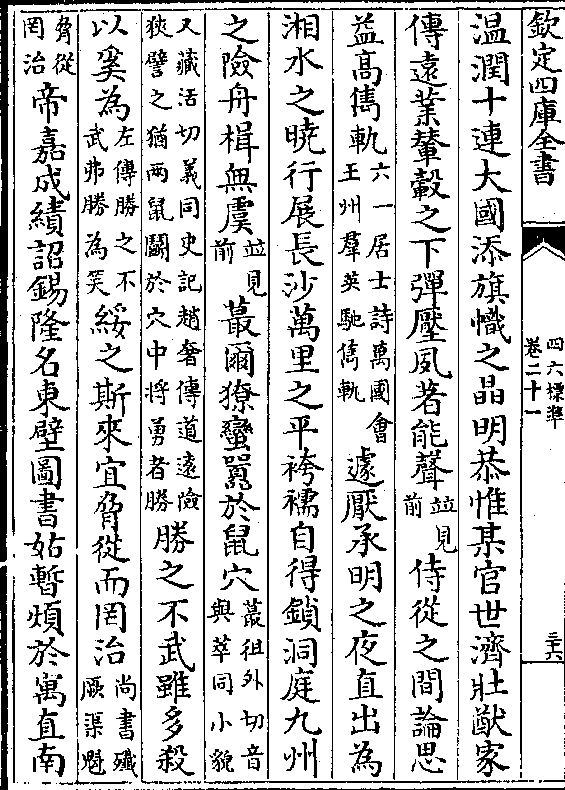 欽定四庫全書
四六標準
卷二十一
三十六
温潤十連大國添旗幟之晶明恭惟某官世濟壯猷家
傳遠業輦轂之下彈壓夙著能聲並見前侍從之間論思
益髙儁軌六一居士詩萬國會王州羣英馳儁軌遽厭承明之夜直出為
湘水之曉行展長沙萬里之平袴襦自得鎖洞庭九州
之險舟楫無虞並見前蕞爾獠蠻嚚於鼠穴蕞徂外切音與萃同小貌
又藏活切義同史記趙奢傳道遠險狹譬之猶兩鼠鬭於穴中將勇者勝勝之不武雖多殺
以奚為左傳勝之不武弗勝為笑綏之斯來宜脅從而罔治尚書殲厥渠魁
脅從罔治帝嘉成績詔錫隆名東壁圖書姑暫煩於寓直南